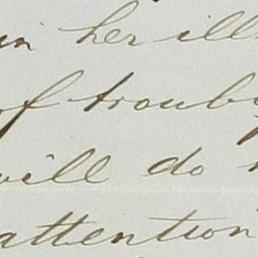 in her ill
of troub
will do
attention